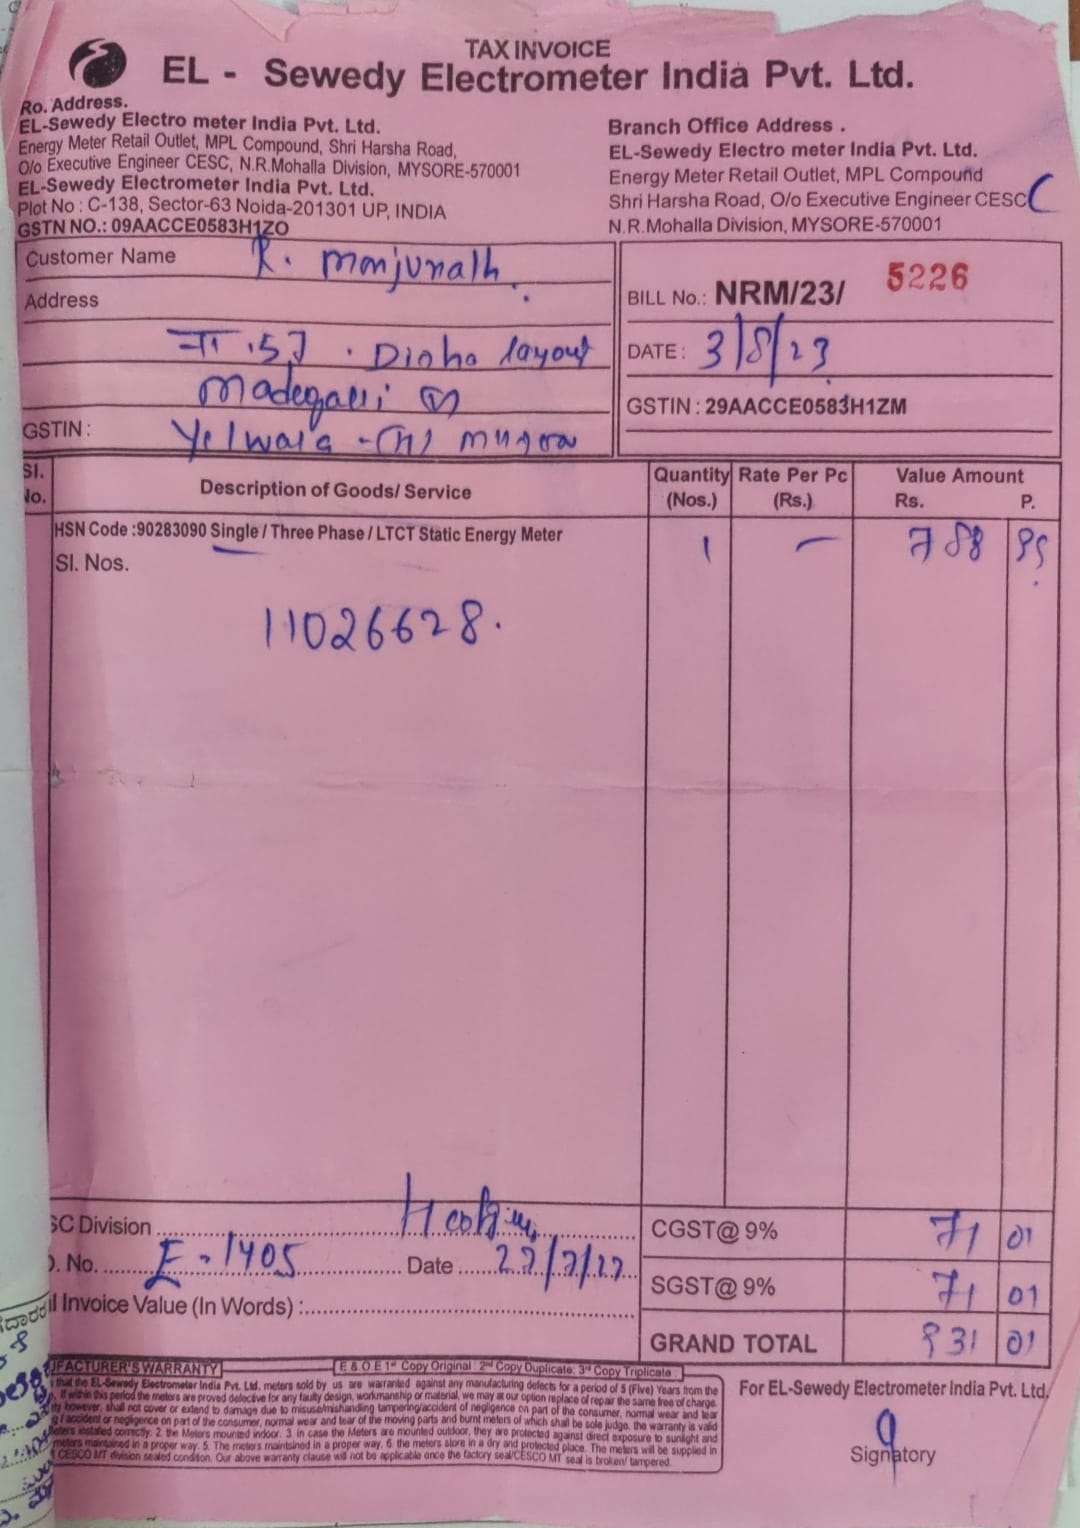 TAX INVOICE
EL - Sewedy Electrometer India Pvt. Ltd.
Ro. Address.
EL-Sewedy Electro meter India Pvt. Ltd.
Energy Meter Retail Outlet, MPL Compound, Shri Harsha Road,
O/o Executive Engineer CESC, N.R.Mohalla Division, MYSORE-570001
EL-Sewedy Electrometer India Pvt. Ltd.
Plot No : C-138, Sector-63 Noida-201301 UP, INDIA
GSTN NO.: 09AACCE0583H1ZO
Branch Office Address .
EL-Sewedy Electro meter India Pvt. Ltd.
Energy Meter Retail Outlet, MPL Compound
Shri Harsha Road, O/o Executive Engineer CESC
N.R.Mohalla Division, MYSORE-570001
Customer Name R. Manjunath
Address
57. Layout
GSTIN : Yelwala
BILL No.: NRM/23/ 5226
DATE : 3/8/23
GSTIN : 29AACCE0583H1ZM
Sl. No. Description of Goods/ Service Quantity (Nos.) Rate Per Pc (Rs.) Value Amount Rs. P.
HSN Code :90283090 Single / Three Phase / LTCT Static Energy Meter 1 - 788 99
Sl. Nos.
11026628.
SC Division
CGST@ 9% 71 01
. No. E-1405 Date
SGST@ 9% 71 01
l Invoice Value (In Words) :
GRAND TOTAL 931 01
UFACTURER'S WARRANTY
E & O E 1st Copy Original : 2nd Copy Duplicate: 3rd Copy Triplicate
that the EL-Sewedy Electrometer India Pvt. Ltd. meters sold by us are warranted against any manufacturing defects for a period of 5 (Five) Years from the
If within this period the meters are proved defective for any faulty design, workmanship or material, we may at our option replace of repair the same free of charge.
ty however, shall not cover or extend to damage due to misuse/mishandling tampering/accident of negligence on part of the consumer, normal wear and tear
g / accident or negligence on part of the consumer, normal wear and tear of the moving parts and burnt meters of which shall be sole judge. the warranty is valid
meters installed correctly. 2. the Meters mounted indoor. 3. in case the Meters are mounted outdoor, they are protected against direct exposure to sunlight and
meters maintained in a proper way. 5. The meters maintained in a proper way. 6. the meters store in a dry and protected place. The meters will be supplied in
CESCO MT division sealed condition. Our above warranty clause will not be applicable once the factory seal/CESCO MT seal is broken/ tampered.
For EL-Sewedy Electrometer India Pvt. Ltd.
Signatory